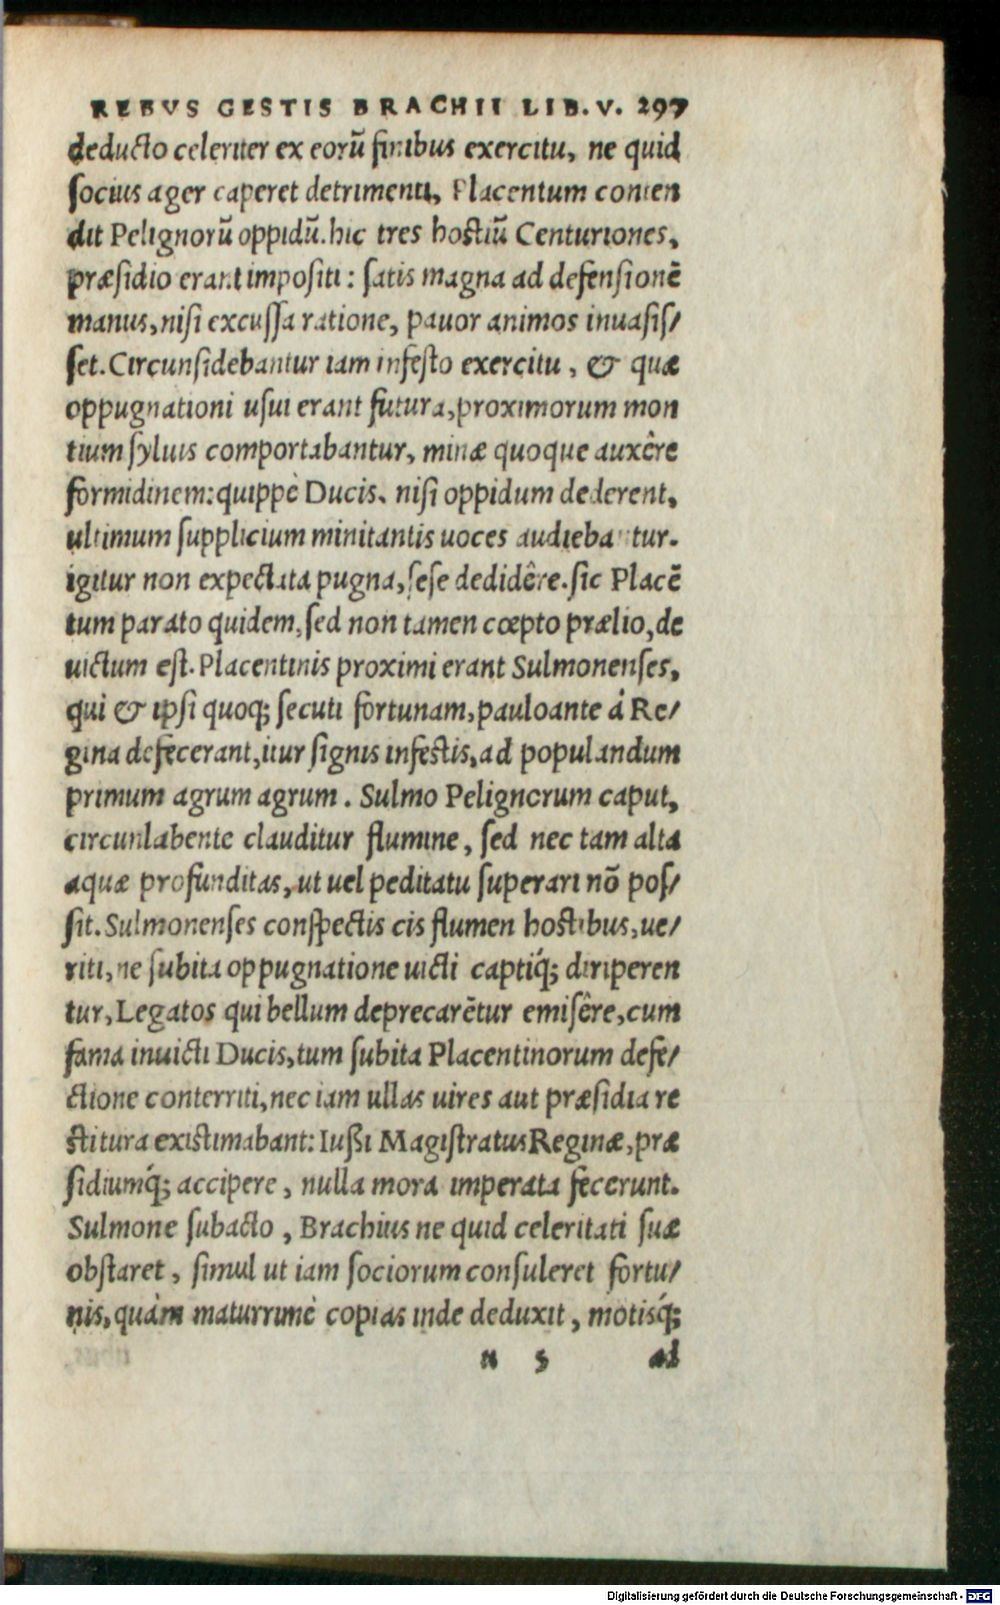 REBVS GESTIS BRACHII LIB. V. 297
deducto celeriter ex eorũ finibus exercitu, ne quid
socius ager caperet detrimenti, Placentum conten
dit Pelignorũ oppidũ. hic tres hostiũ Centuriones,
præsidio erant impositi: satis magna ad defensionẽ
manus, nisi excussa ratione, pauor animos inuasis/
set. Circunsidebantur iam infesto exercitu, & quæ
oppugnationi usui erant futura, proximorum mon
tium syluis comportabantur, minæ quoque auxêre
formidinem: quippè Ducis, nisi oppidum dederent,
ultimum supplicium minitantis uoces audiebantur.
igitur non expectata pugna, sese dedidêre. sic Placẽ
tum parato quidem, sed non tamen cœpto prælio, de
uictum est. Placentinis proximi erant Sulmonenses,
qui & ipsi quoq; secuti fortunam, pauloante à Re/
gina defecerant, itur signis infestis, ad populandum
primum agrum agrum. Sulmo Pelignorum caput,
circunlabente clauditur flumine, sed nec tam alta
aquæ profunditas, ut uel peditatu superari nõ pos/
sit. Sulmonenses conspectis cis flumen hostibus, ue/
riti, ne subita oppugnatione uicti captiq́; diriperen
tur, Legatos qui bellum deprecarẽtur emisêre, cum
fama inuicti Ducis, tum subita Placentinorum defe/
ctione conterriti, nec iam ullas uires aut præsidia re
stitura existimabant: Iußi Magistratus Reginæ, præ
sidiumq́; accipere, nulla mora imperata fecerunt.
Sulmone subacto, Brachius ne quid celeritati suæ
obstaret, simul ut iam sociorum consuleret fortu/
nis, quàm maturrimè copias inde deduxit, motisq́;
n 5 ad
Digitalisierung gefördert durch die Deutsche Forschungsgemeinschaft - DFG